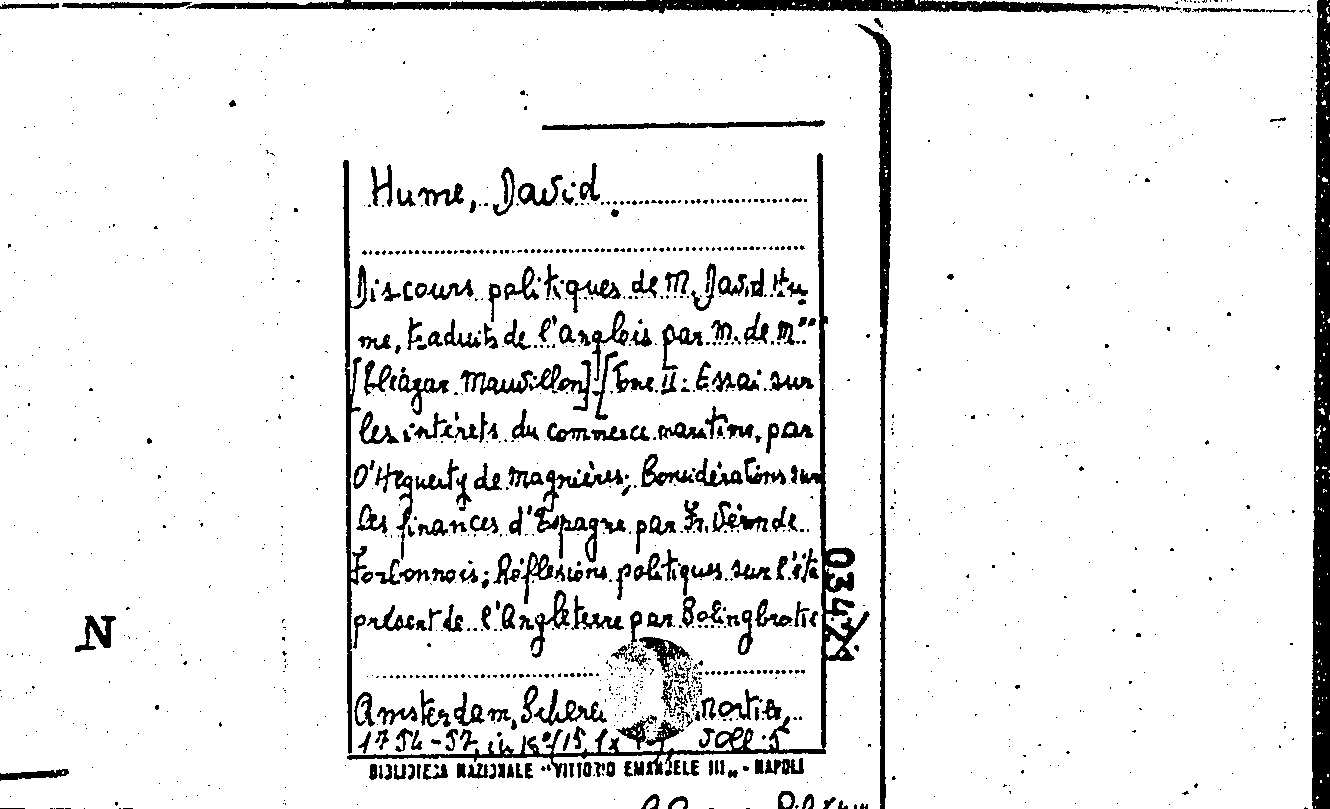 Hume, David.
Discours politiques de M. David Hu-
me, traduits de l'anglois par M. de M***
[Eléazar Mauvillon]. [Tome II: Essai sur
les intérêts du commerce maritime, par
O'Heguerty de Magnières; Considérations sur
les finances d'Espagne par Fr. Véron de
Forbonnois; Réflexions politiques sur l'éta
présent de l'Angleterre par Bolingbroke
0342
N
Amsterdam, Mortier,
1754-57, in
BIBLIOTECA NAZIONALE "VITTORIO EMANUELE III" - NAPOLI